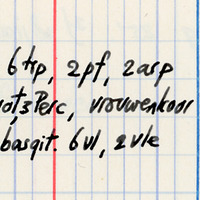 6 trp, 2pf, 2asp
3Perc, vrouwenkoor
basgit. 6vl, 2vle